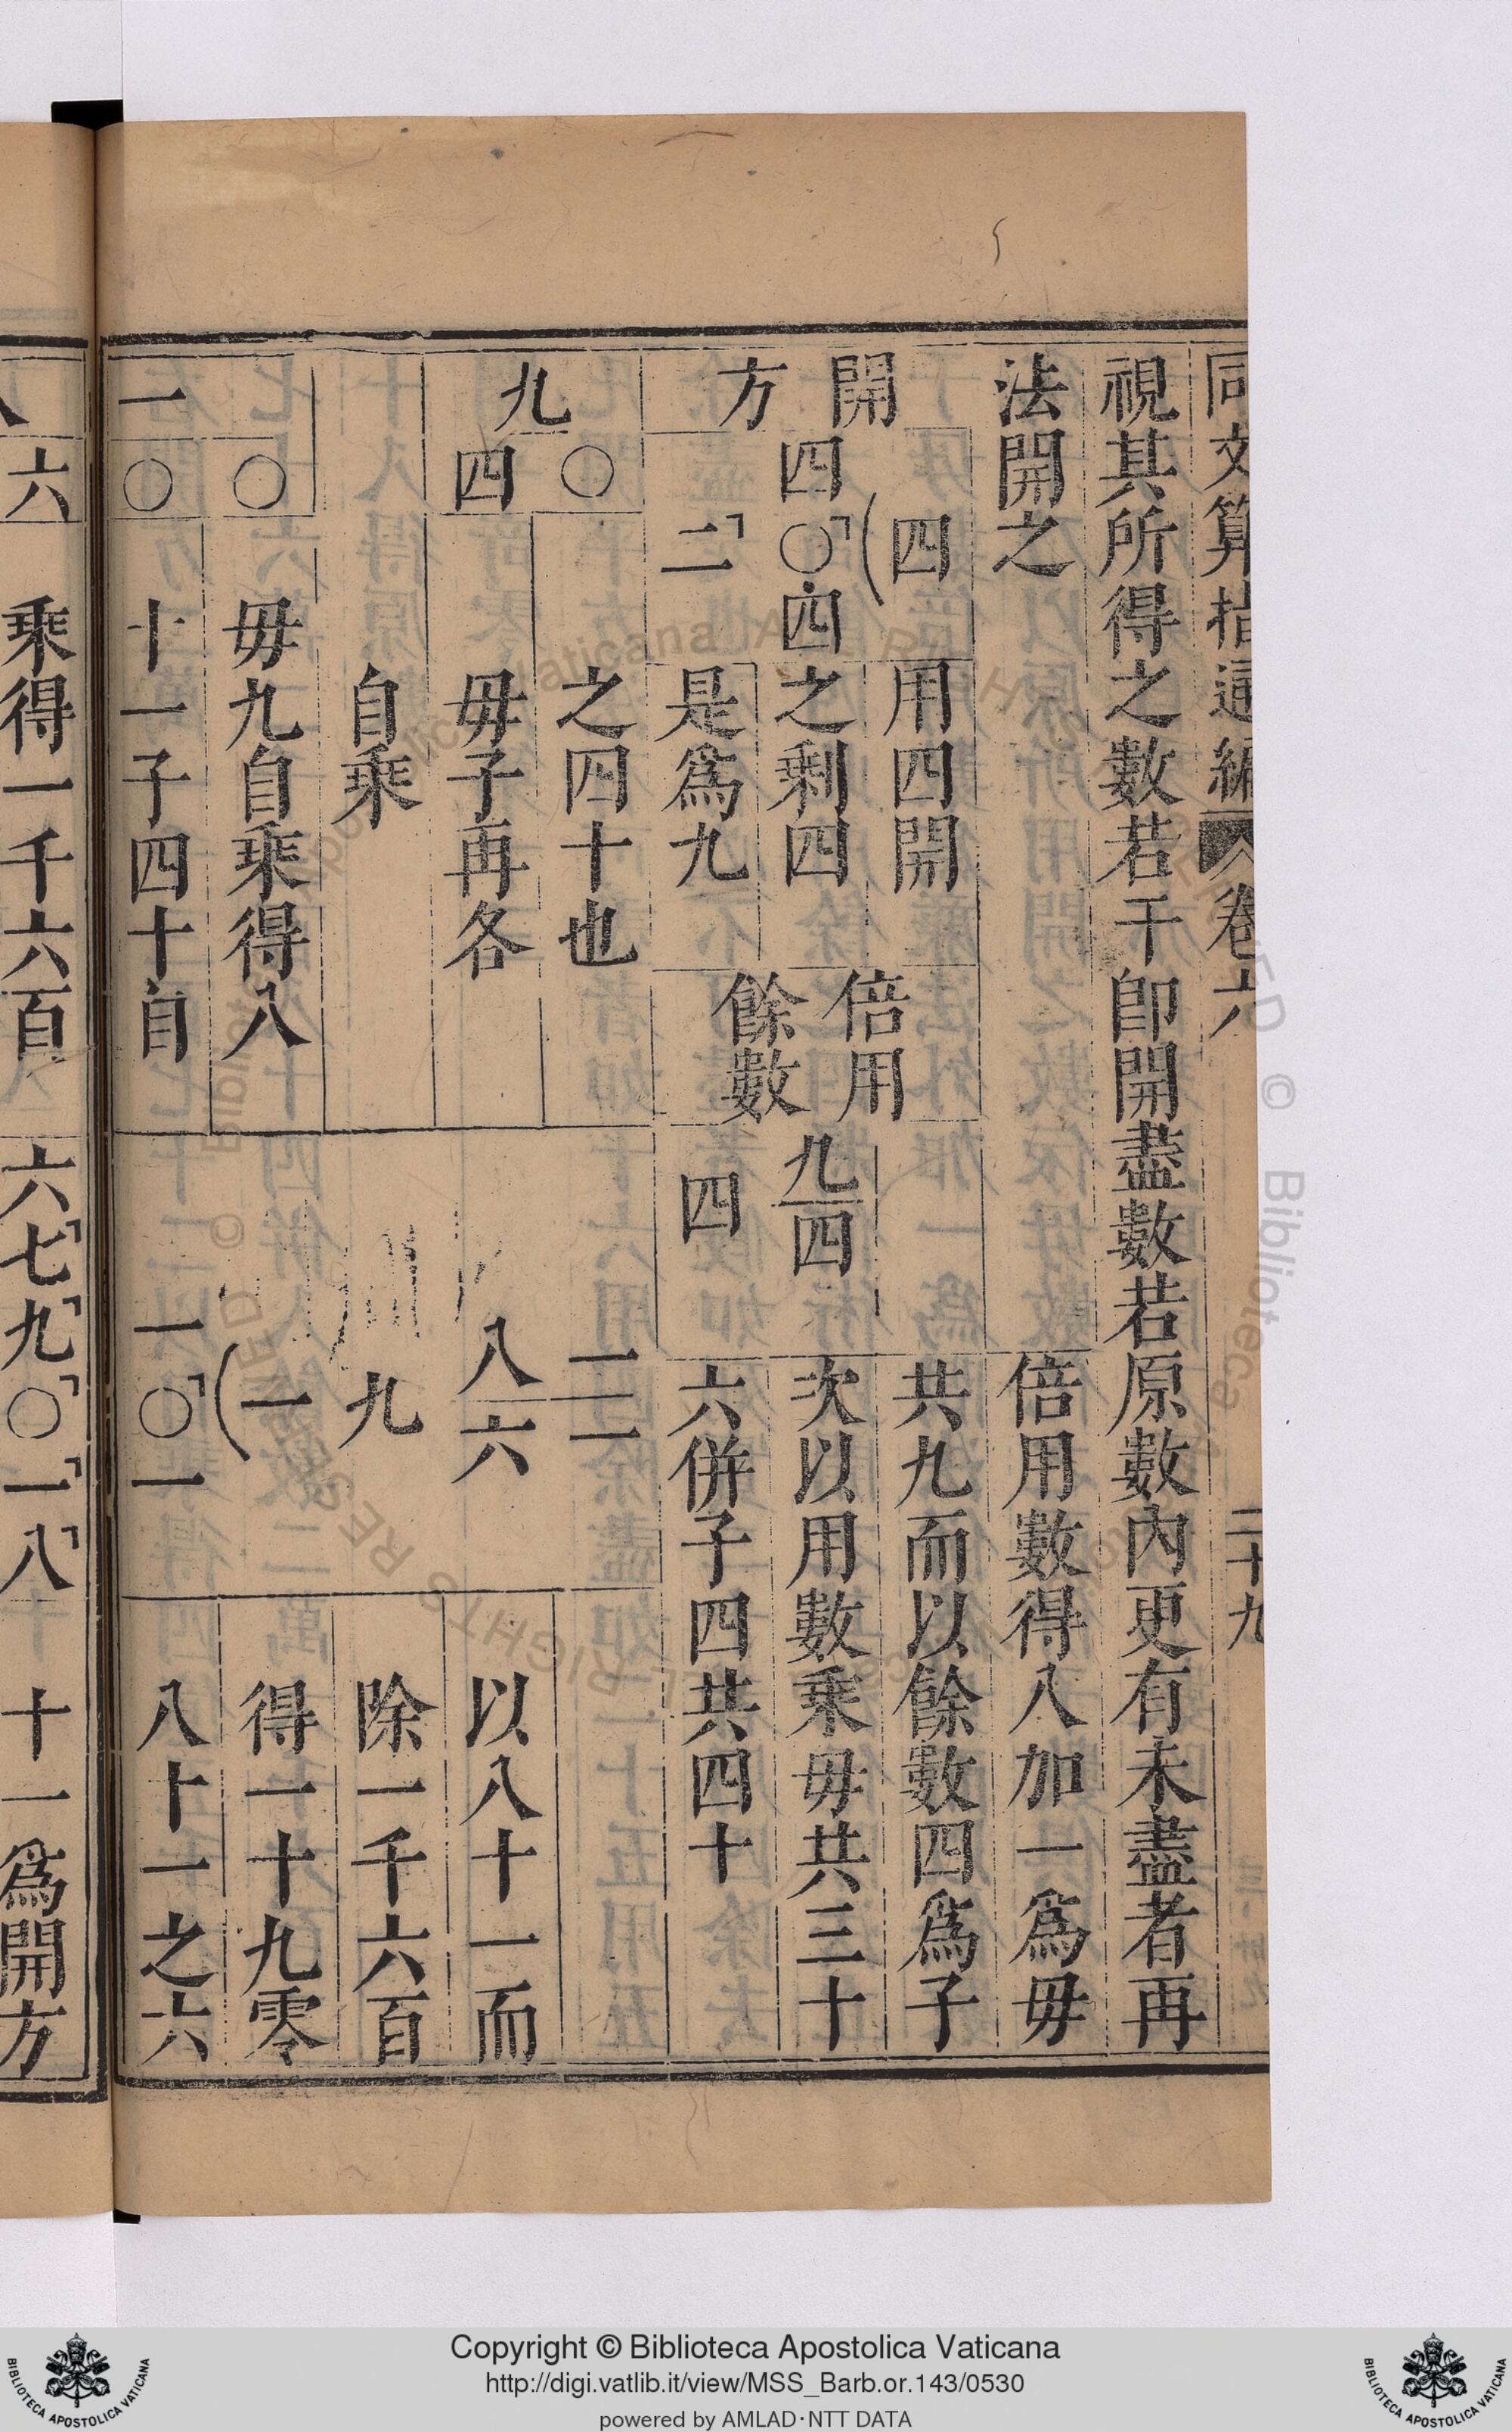 同文算指通編 卷六 二十九
視其所得之數若干卽開盡數若原數內更有未盡者再
法開之
倍用數得八加一爲毋
開方
四
四〇四
二
用四開
之剩四
是爲九
倍用
餘數
九四
四
共九而以餘數四爲子
次以用數乘毋共三十
六併子四共四十
九
〇
四
之四十也
毋子再各
自乘
〇
毋九自乘得八
一〇
十一子四十自
一二
八六
九
一
一〇一
以八十一而
除一千六百
得一十九零
八十一之六
八
六
乘得一千六百
六七九〇一八
十一爲開方
Copyright © Biblioteca Apostolica Vaticana
http://digi.vatlib.it/view/MSS_Barb.or.143/0530
powered by AMLAD·NTT DATA
BIBLIOTECA APOSTOLICA VATICANA
BIBLIOTECA APOSTOLICA VATICANA